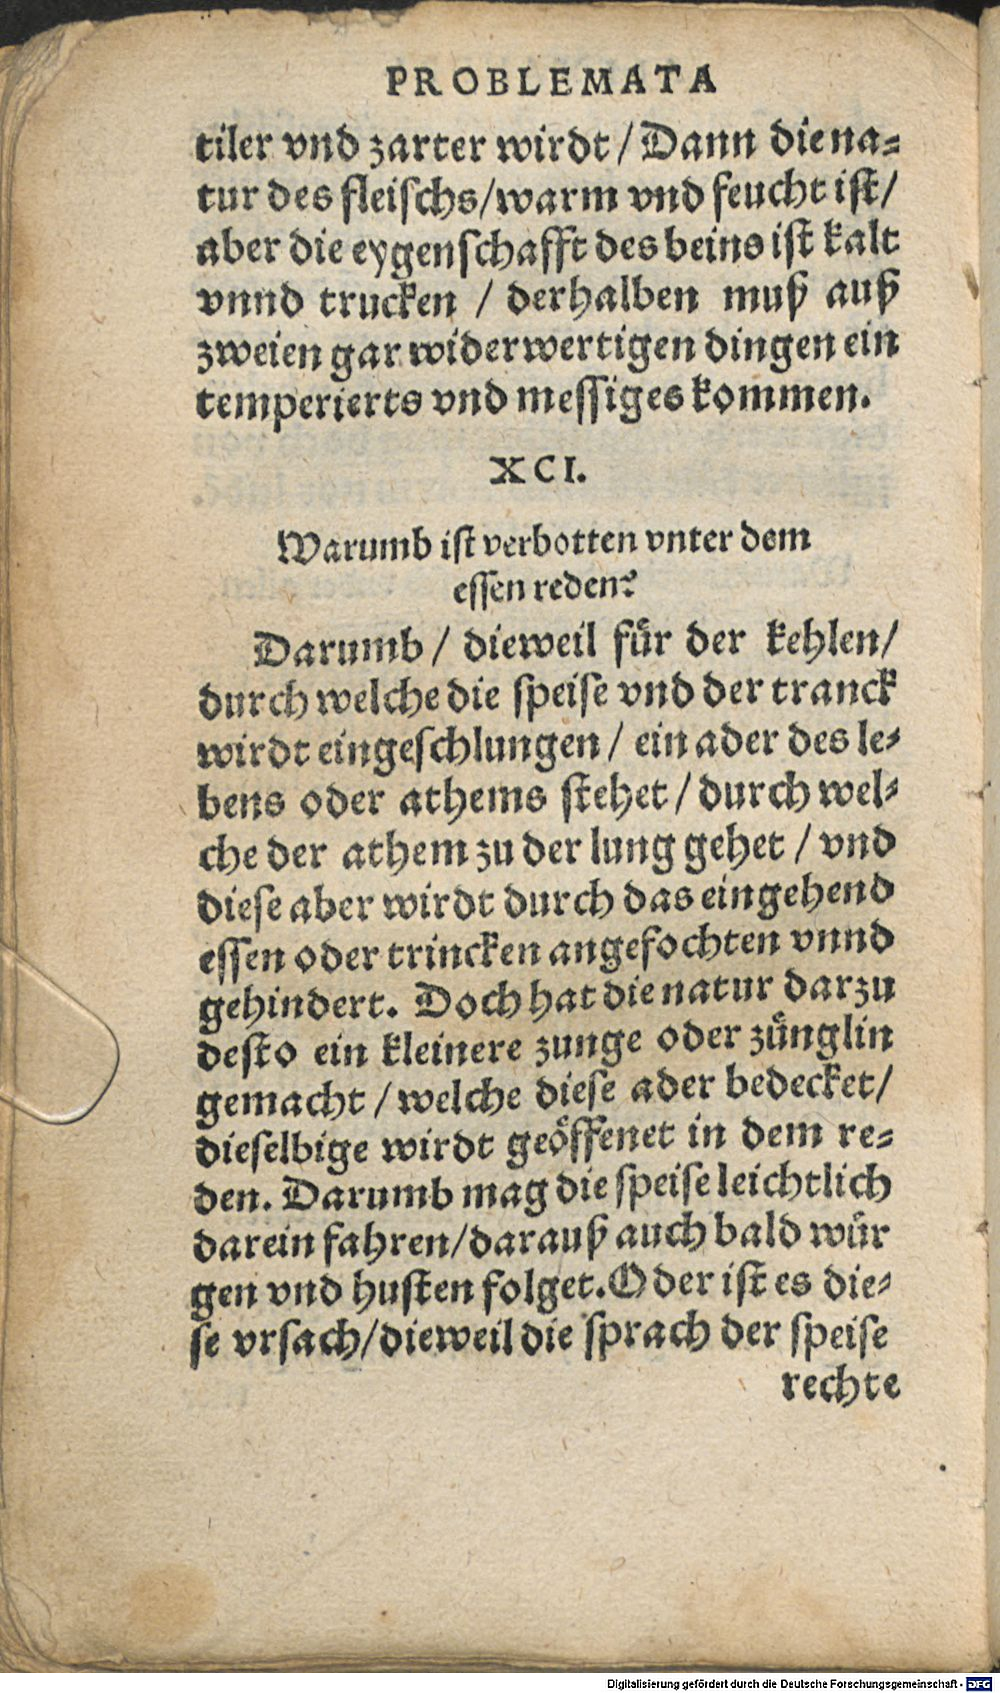 PROBLEMATA
tiler vnd zarter wirdt / Dann die na-
tur des fleischs/warm vnd feucht ist/
aber die eygenschafft des beins ist kalt
vnnd trucken / derhalben muß auß
zweien gar widerwertigen dingen ein
temperierts vnd messiges kommen.
XCI.
Warumb ist verbotten vnter dem
essen reden?
Darumb / dieweil für der kehlen/
durch welche die speise vnd der tranck
wirdt eingeschlungen / ein ader des le-
bens oder athems stehet / durch wel-
che der athem zu der lung gehet / vnd
diese aber wirdt durch das eingehend
essen oder trincken angefochten vnnd
gehindert. Doch hat die natur darzu
desto ein kleinere zunge oder zünglin
gemacht / welche diese ader bedecket/
dieselbige wirdt geöffenet in dem re-
den. Darumb mag die speise leichtlich
darein fahren/darauß auch bald wür
gen vnd husten folget. Oder ist es die-
se vrsach/dieweil die sprach der speise
rechte
Digitalisierung gefördert durch die Deutsche Forschungsgemeinschaft - DFG